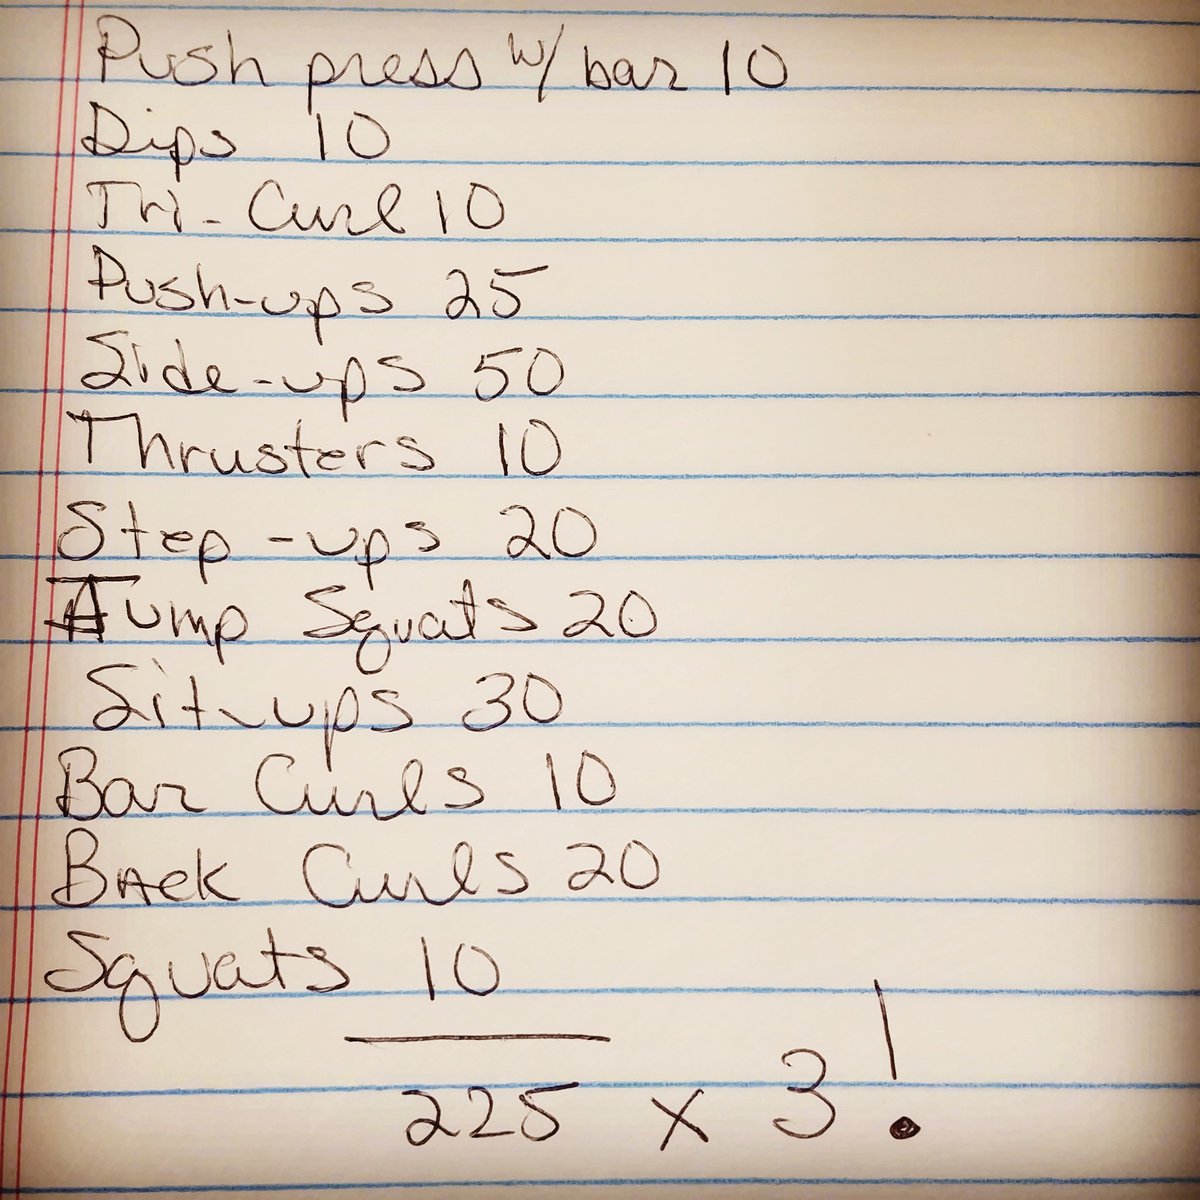 Push press w/ bar 10
Dips 10
Tri-Curl 10
Push-ups 25
Side-ups 50
Thrusters 10
Step-ups 20
Jump Squats 20
Sit-ups 30
Bar Curls 10
Back Curls 20
Squats 10
225 x 3!